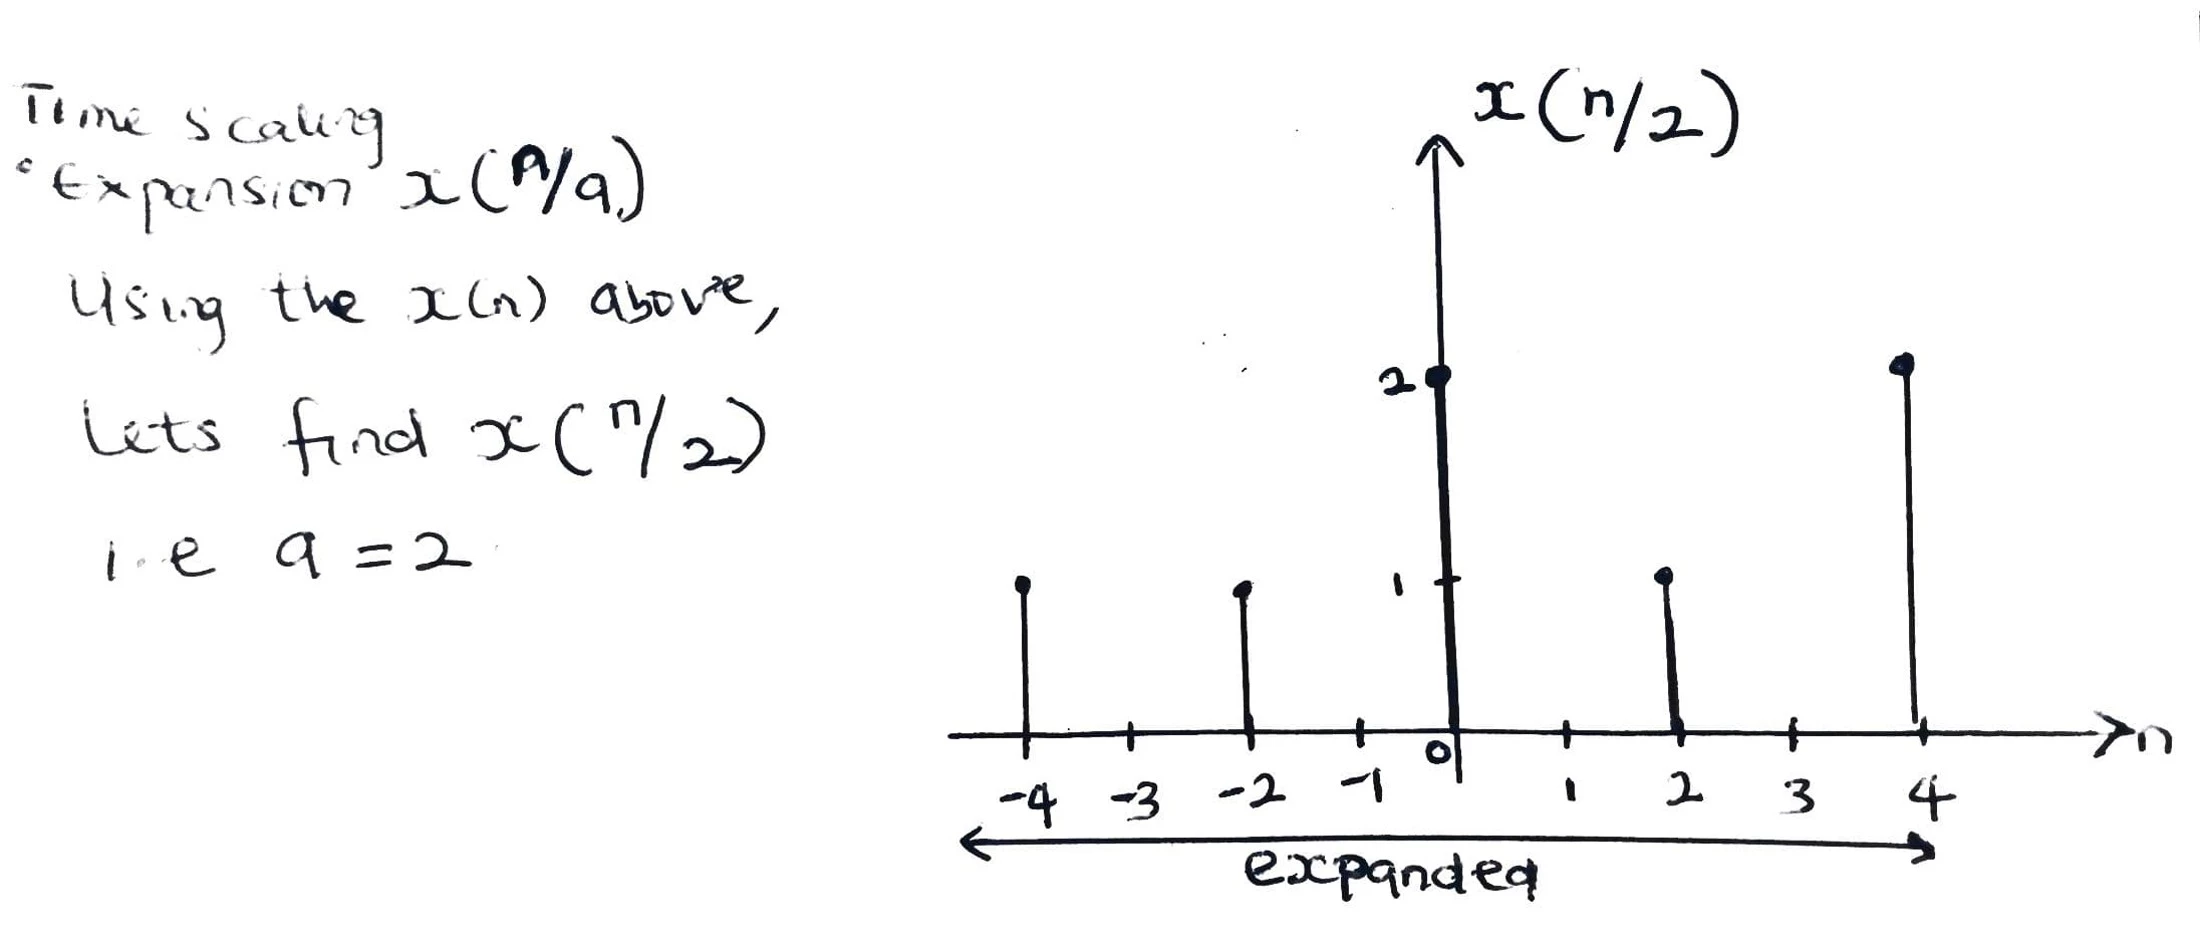 Time scaling
• Expansion x(n/a)
Using the x(n) above,
Lets find x(n/2)
i.e a = 2
x(n/2)
2
1
0
n
-4 -3 -2 -1 1 2 3 4
expanded